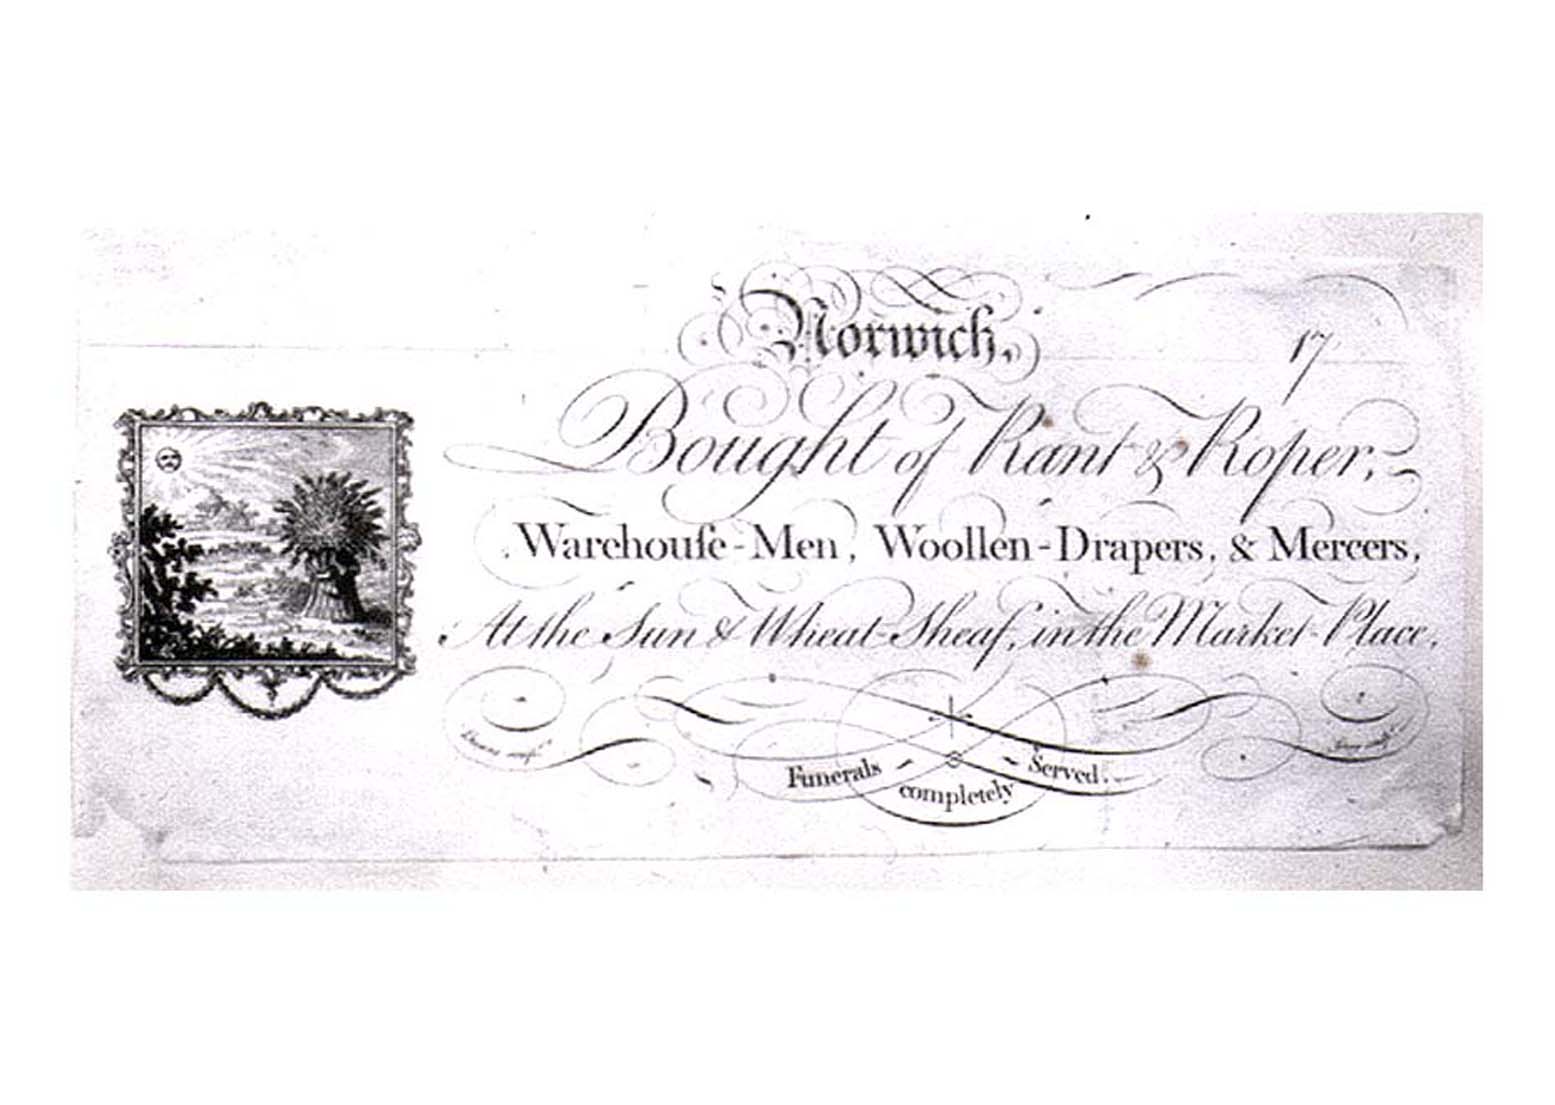 Norwich, 17
Bought of Kant & Roper,
Warehouſe-Men, Woollen-Drapers, & Mercers,
At the Sun & Wheat-Sheaf, in the Market-Place.
Funerals completely Served.